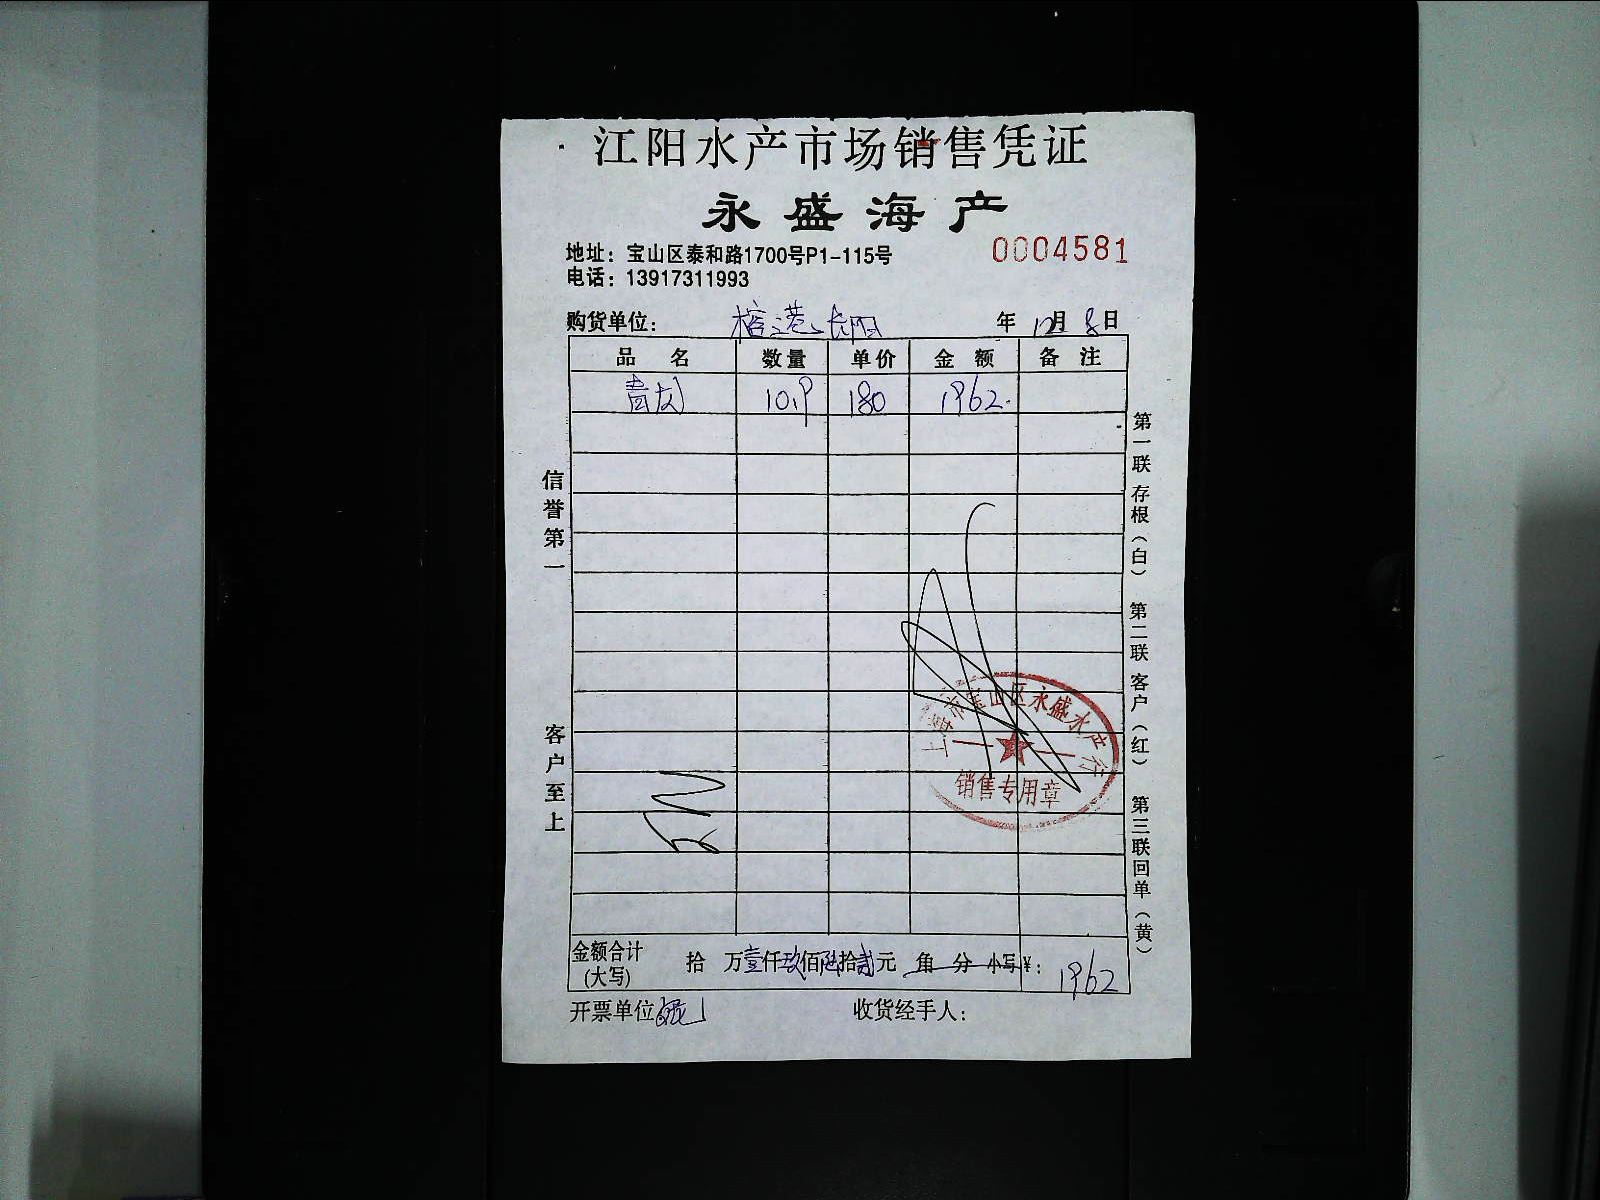 江阳水产市场销售凭证
永盛海产
地址：宝山区泰和路1700号P1-115号
0004581
电话：13917311993
购货单位： 榕港 长阳 年 12月 8日
品 名 数量 单价 金 额 备 注
青龙 10.9 180 1962.
信誉第一
客户至上
第一联 存根（白） 第二联 客户（红） 第三联 回单（黄）
上海市宝山区永盛水产行
销售专用章
金额合计（大写） 拾 万壹仟玖佰陆拾贰元 角 分 小写¥: 1962
开票单位 收货经手人：